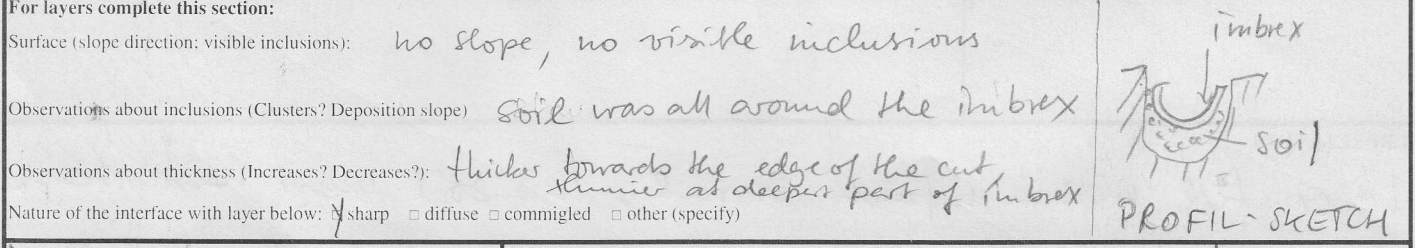 For layers complete this section:
Surface (slope direction; visible inclusions): no slope, no visible inclusions
Observations about inclusions (Clusters? Deposition slope) soil was all around the imbrex
Observations about thickness (Increases? Decreases?): thicker towards the edge of the cut,
thinner at deepest part of imbrex
Nature of the interface with layer below: sharp □ diffuse □ commigled □ other (specify)
imbrex
soil
PROFIL-SKETCH